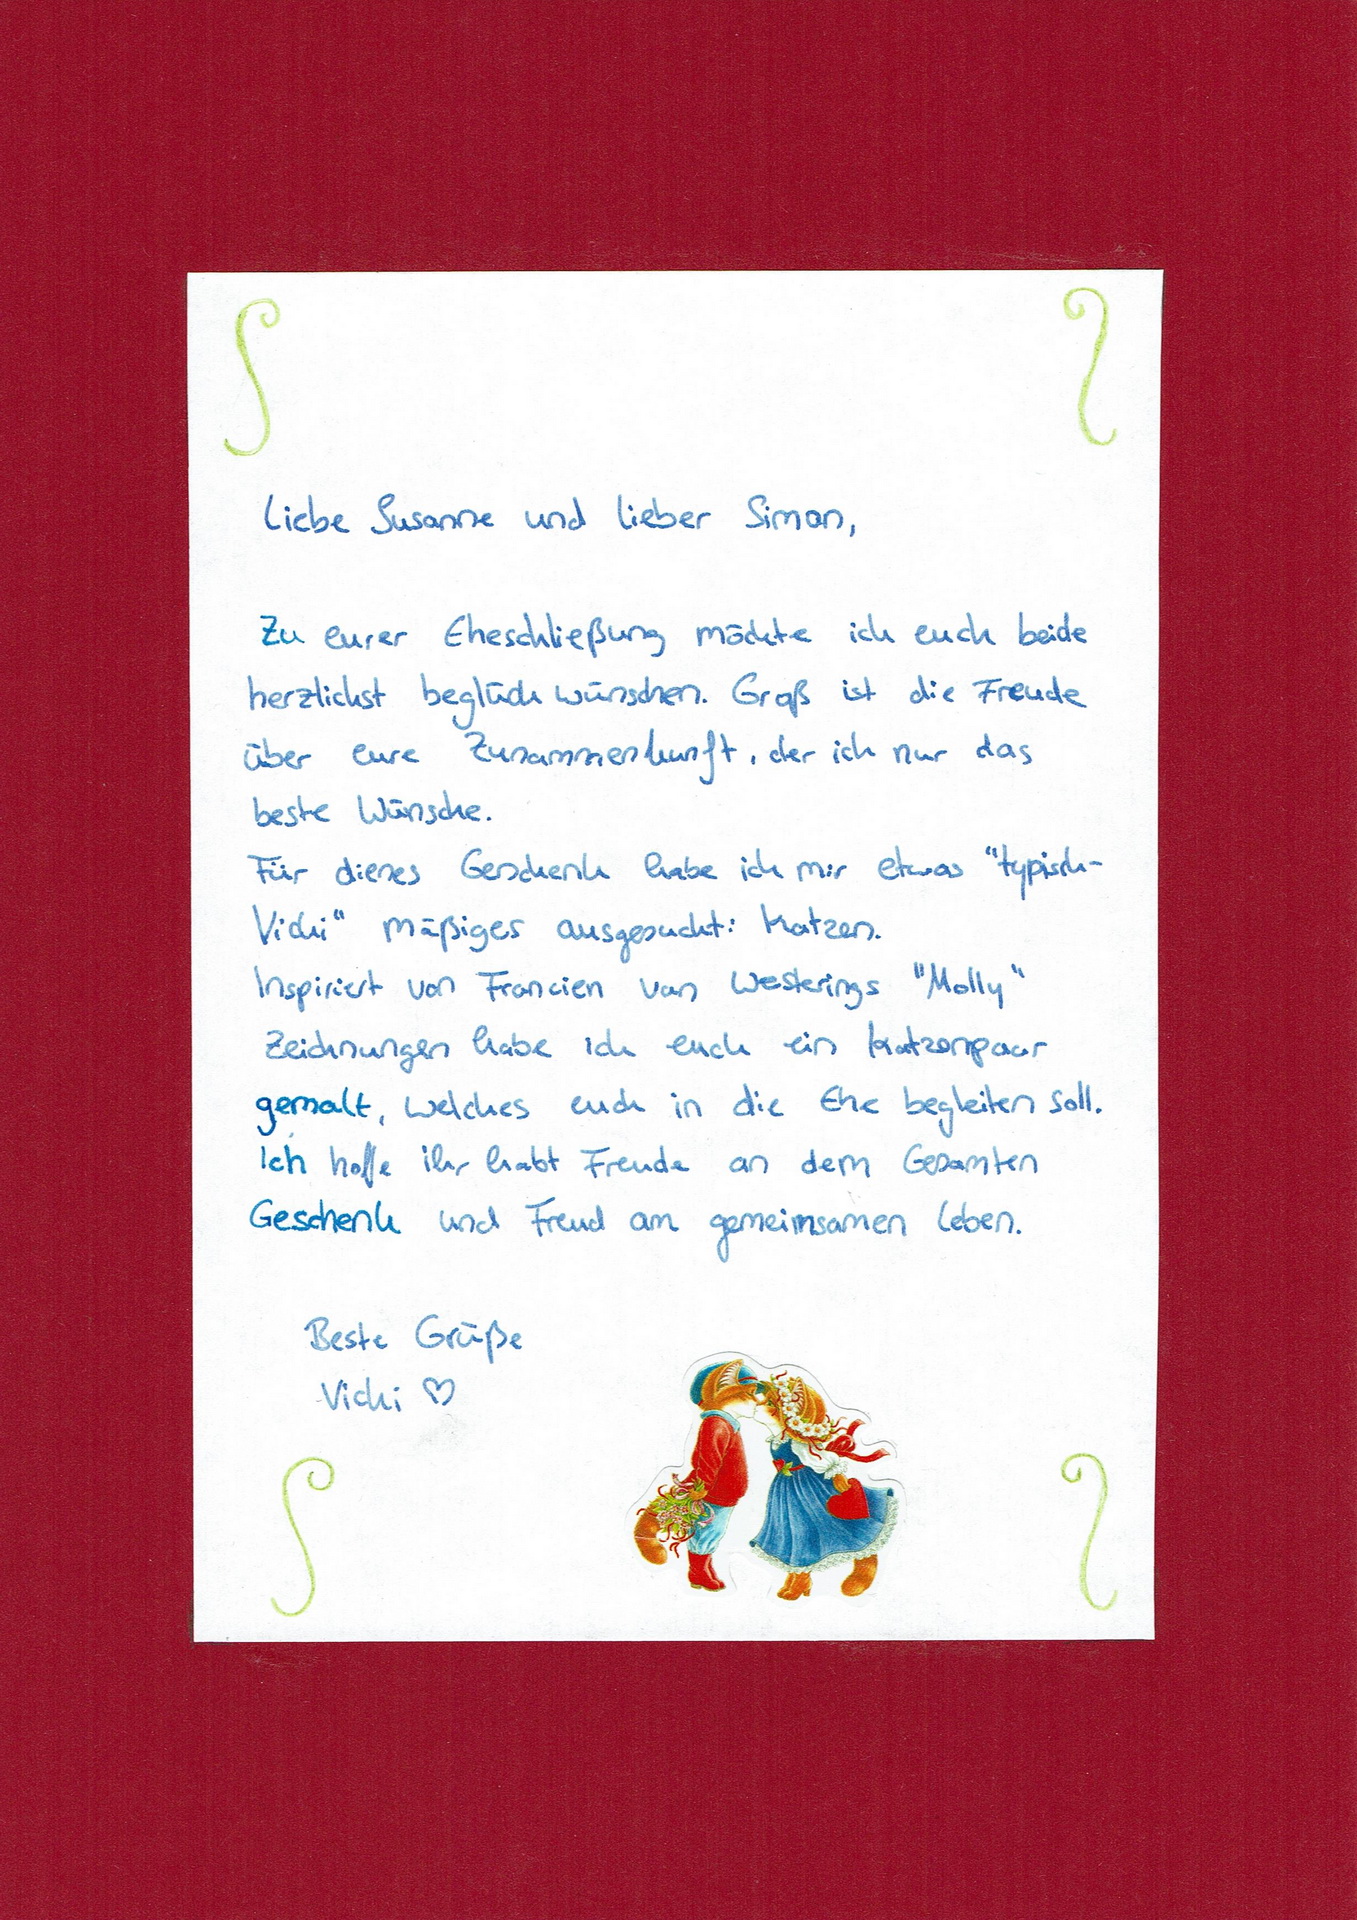 Liebe Susanne und lieber Simon,
Zu eurer Eheschließung möchte ich euch beide
herzlichst beglückwünschen. Groß ist die Freude
über eure Zusammenkunft, der ich nur das
beste Wünsche.
Für dieses Geschenk habe ich mir etwas "typisch-
Vicki" mäßiges ausgesucht: Katzen.
Inspiriert von Francien van Westerings "Molly"
Zeichnungen habe ich euch ein Katzenpaar
gemalt, welches euch in die Ehe begleiten soll.
Ich hoffe ihr habt Freude an dem Gesamten
Geschenk und Freud am gemeinsamen Leben.
Beste Grüße
Vicki ♡